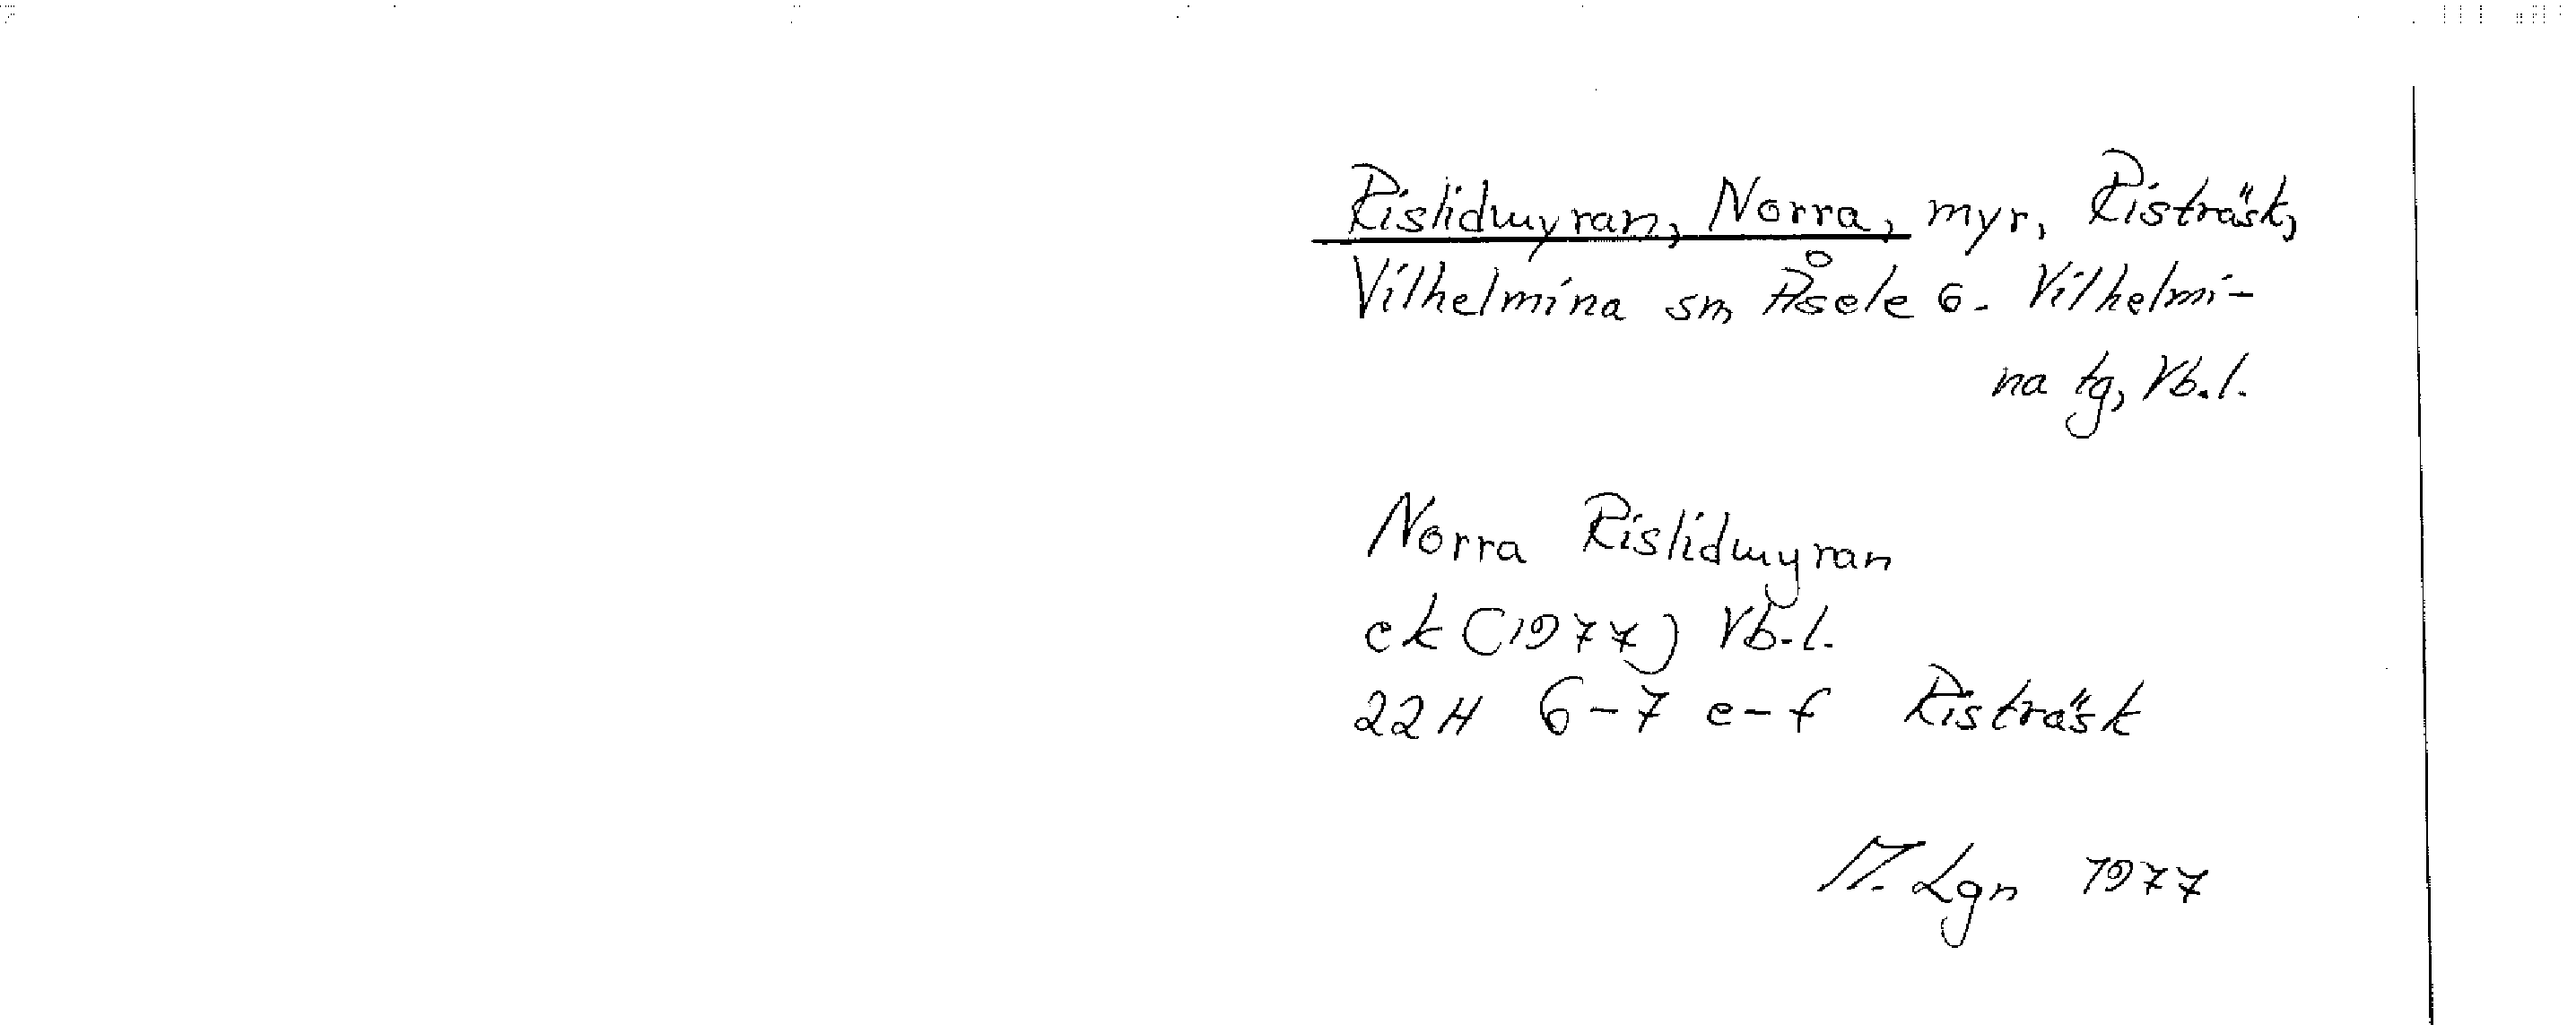 Rislidmyran, Norra, myr, Risträsk,
Vilhelmina sn Åsele o. Vilhelmi-
na tg, Vb.l.
Norra Rislidmyran
ek (1977) Vb.l.
22H 6-7 e-f Risträsk
M. Lgn 1977